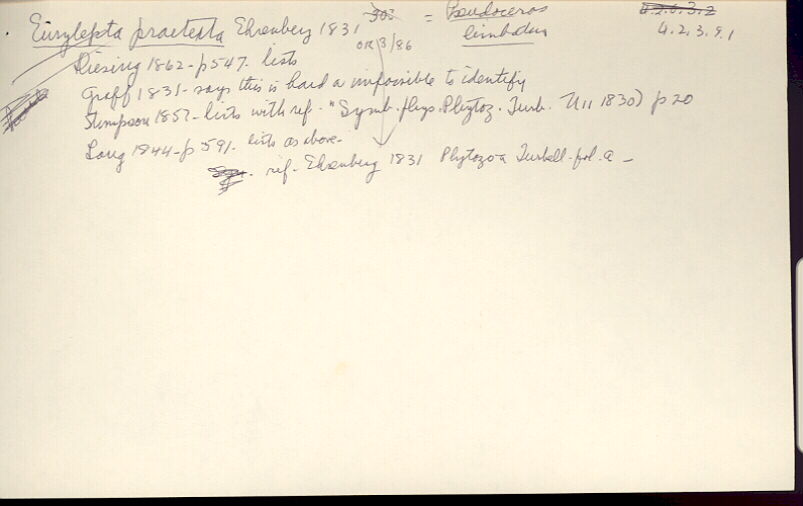 Eurylepta praetexta Ehrenberg 1831 = Pseudoceros limbatus
OR 3/86
4.2.6.3.2
4.2.3.9.1
Diesing 1862 - p 547. lists
Graff 1831 - says this is hard a impossible to identify
Stimpson 1857 - lists with ref. "Symb. phys. Phytoz. Turb. 1830) p 20
Lang 1844 - p 591. lists as above.
ref - Ehrenberg 1831 Phytozoa Turbell. fol. a -